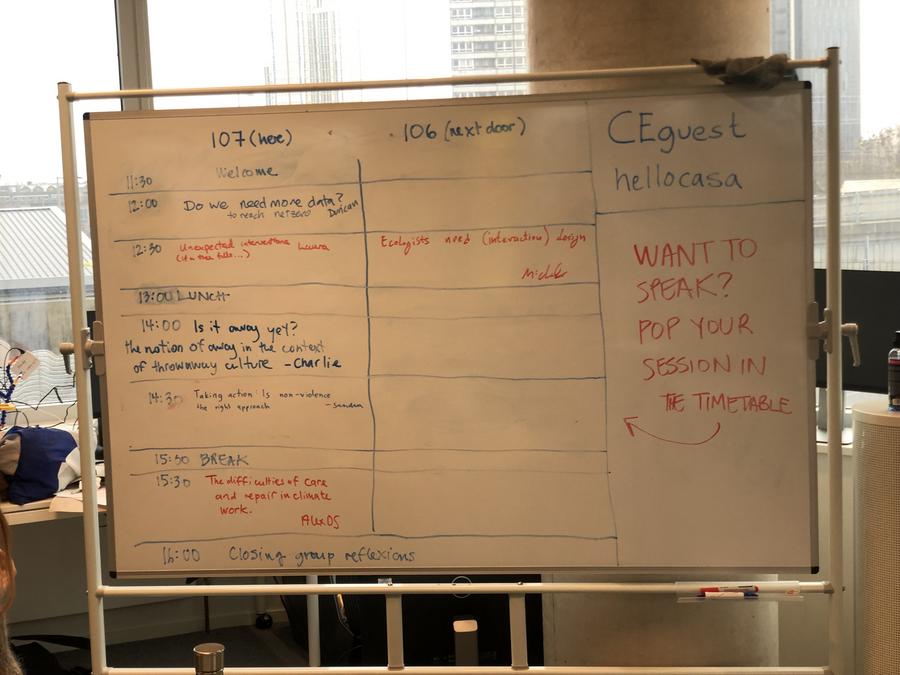 107 (here)
106 (next door)
CEguest
hellocasa
11:30 Welcome
12:00 Do we need more data?
to reach netzero Duncan
12:30 Unexpected interventions Laura
Ecologists need (interaction) design
13:00 LUNCH
14:00 Is it away yet?
the notion of away in the context
of thrownaway culture - Charlie
14:30 Taking action: Is non-violence
the right approach
15:30 BREAK
15:30 The difficulties of care
and repair in climate
work.
Alex DS
16:00 Closing group reflexions
WANT TO
SPEAK?
POP YOUR
SESSION IN
THE TIMETABLE